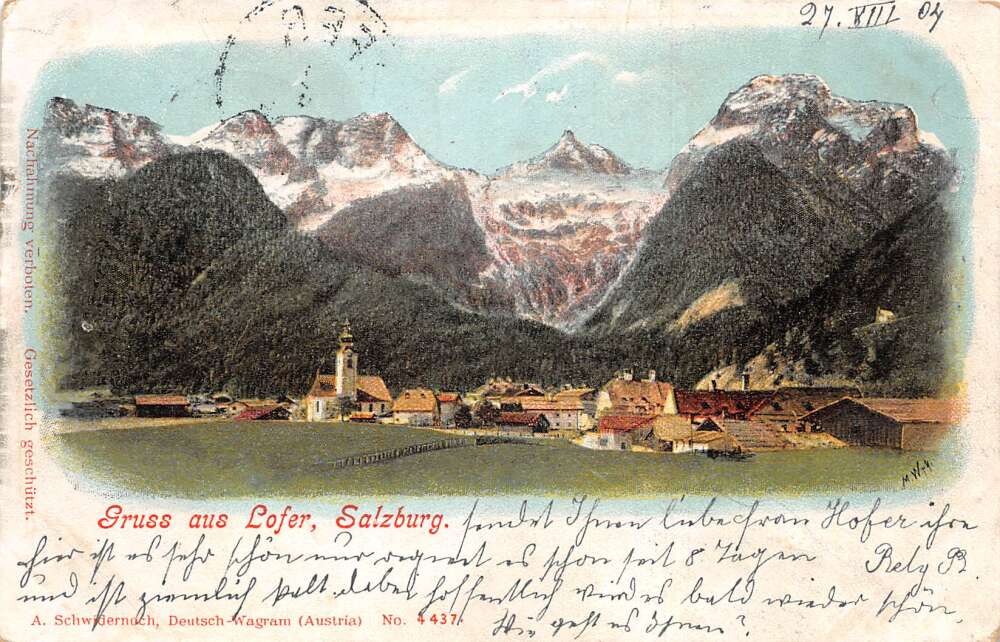 27. VIII 04
Nachahmung verboten. Gesetzlich geschützt.
M. W.
Gruss aus Lofer, Salzburg. sendet Ihnen liebe Frau Hofer ihre
hier ist es sehr schön nur regnet es schon seit 8 Tagen Rely B.
und ist ziemlich kalt dabei hoffentlich wird es bald wieder schön.
Wie geht es Ihnen?
A. Schwidernoch, Deutsch-Wagram (Austria) No. 4437.